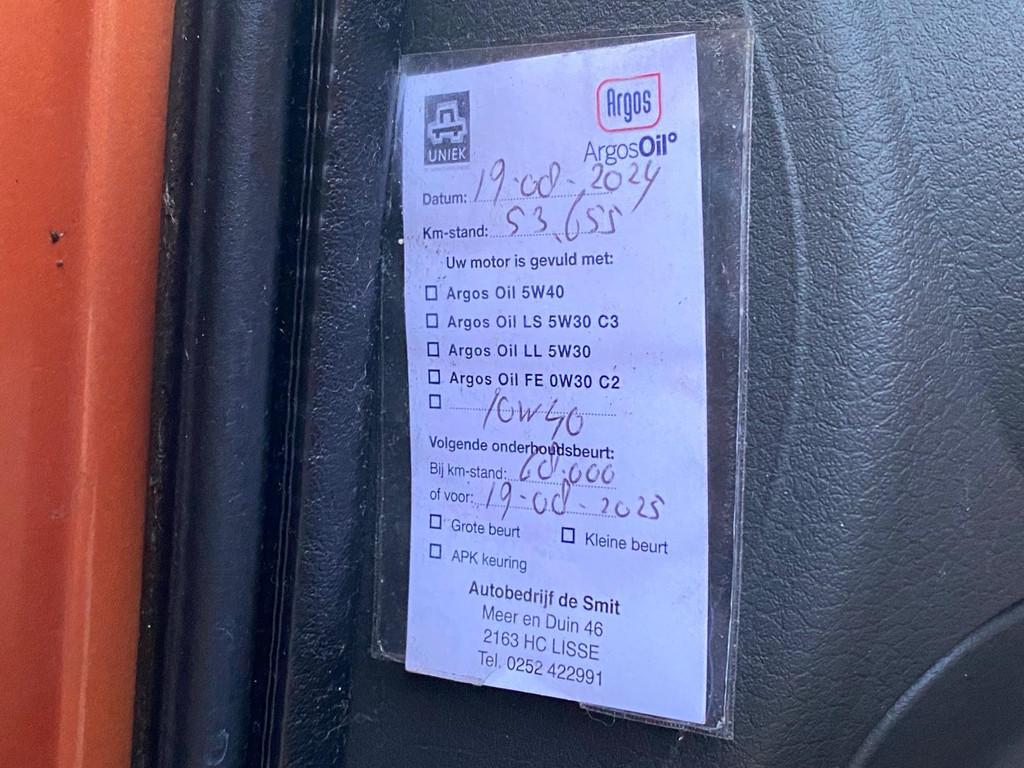 UNIEK
Argos
ArgosOil°
Datum: 19-08-2024
Km-stand: 53.655
Uw motor is gevuld met:
☐ Argos Oil 5W40
☐ Argos Oil LS 5W30 C3
☐ Argos Oil LL 5W30
☐ Argos Oil FE 0W30 C2
☐ 10W40
Volgende onderhoudsbeurt:
Bij km-stand: 68.000
of voor: 19-08-2025
☐ Grote beurt ☐ Kleine beurt
☐ APK keuring
Autobedrijf de Smit
Meer en Duin 46
2163 HC LISSE
Tel. 0252 422991